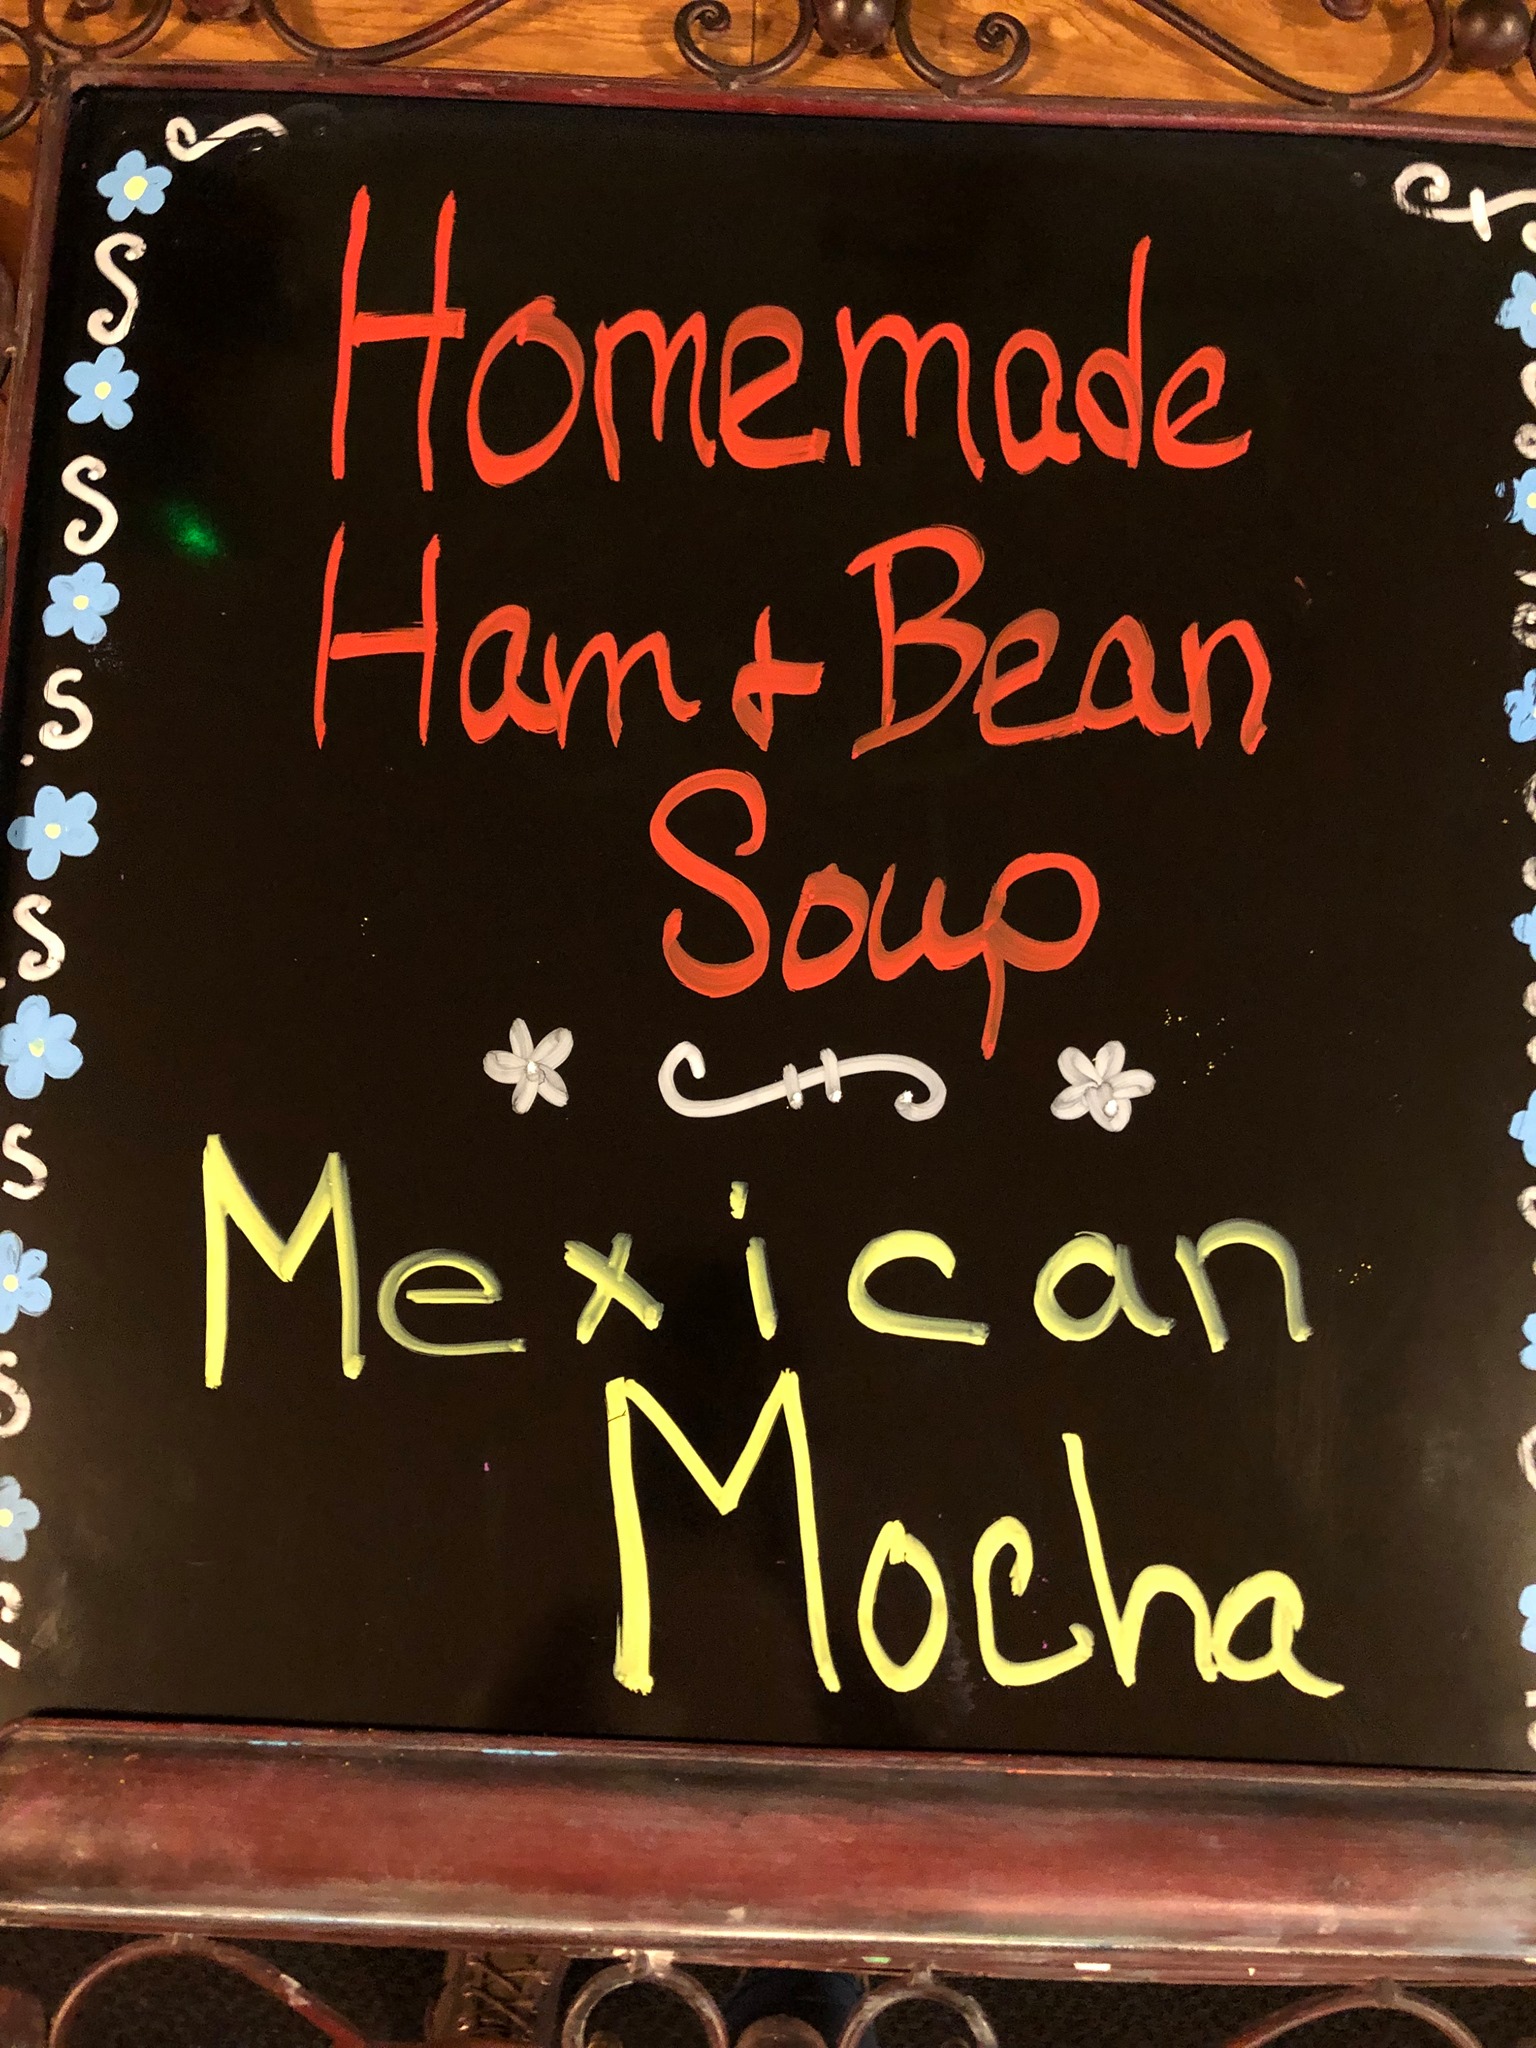 Homemade
Ham + Bean
Soup
Mexican
Mocha